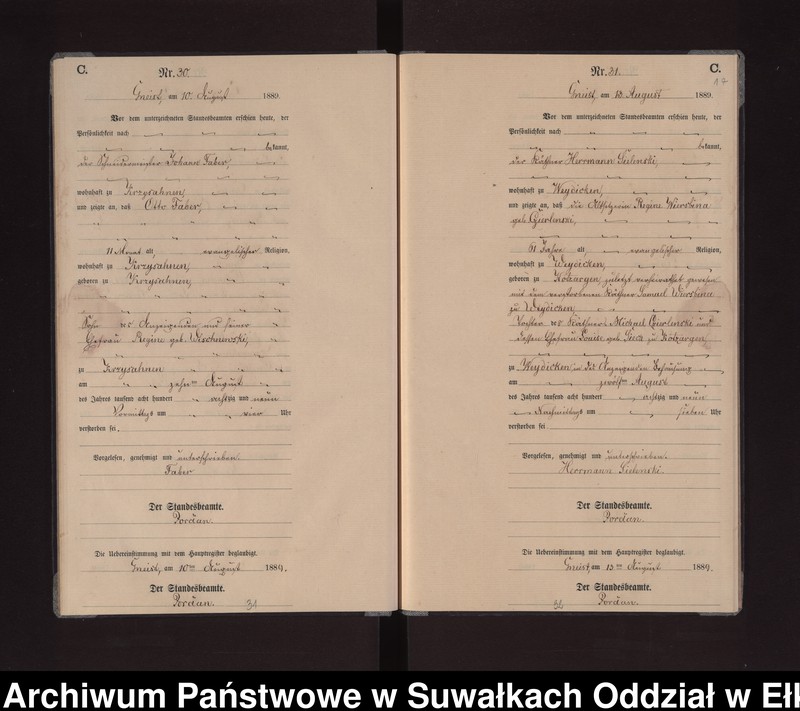 C.
Nr. 30.
Gneist, am 10. August 1889.
Vor dem unterzeichneten Standesbeamten erschien heute, der
Persönlichkeit nach
bekannt,
der Schneidermeister Johann Faber,
wohnhaft zu Krzysahnen,
und zeigte an, daß Otto Faber,
11 Monat alt, evangelischer Religion,
wohnhaft zu Krzysahnen,
geboren zu Krzysahnen,
Sohn des Anzeigenden und seiner
Ehefrau Regine geb. Wischnewski,
zu Krzysahnen
am zehnten August
des Jahres tausend acht hundert achtzig und neun
Vormittags um vier Uhr
verstorben sei.
Vorgelesen, genehmigt und unterschrieben.
Faber
Der Standesbeamte.
Pordan.
Die Uebereinstimmung mit dem Hauptregister beglaubigt.
Gneist, am 10ten August 1889.
Der Standesbeamte.
Pordan.
31
C.
Nr. 31.
17
Gneist, am 13. August 1889.
Vor dem unterzeichneten Standesbeamten erschien heute, der
Persönlichkeit nach
bekannt,
der Käthner Herrmann Sielenski,
wohnhaft zu Weydicken,
und zeigte an, daß die Altsitzerin Regine Wiersbina
geb.
61 Jahre alt, evangelischer Religion,
wohnhaft zu Weydicken,
geboren zu zuletzt verheirathet gewesen
mit dem verstorbenen Käthner Samuel Wiersbina
zu Weydicken,
Tochter des Käthners Michael und
dessen Ehefrau Louise geb.
zu Weydicken in des Anzeigenden Behausung
am zwölften August
des Jahres tausend acht hundert achtzig und neun
Nachmittags um sieben Uhr
verstorben sei
Vorgelesen, genehmigt und unterschrieben.
Herrmann Sielenski.
Der Standesbeamte.
Pordan.
Die Uebereinstimmung mit dem Hauptregister beglaubigt.
Gneist, am 13ten August 1889.
Der Standesbeamte.
Pordan.
Archiwum Państwowe w Suwałkach Oddział w Ełk